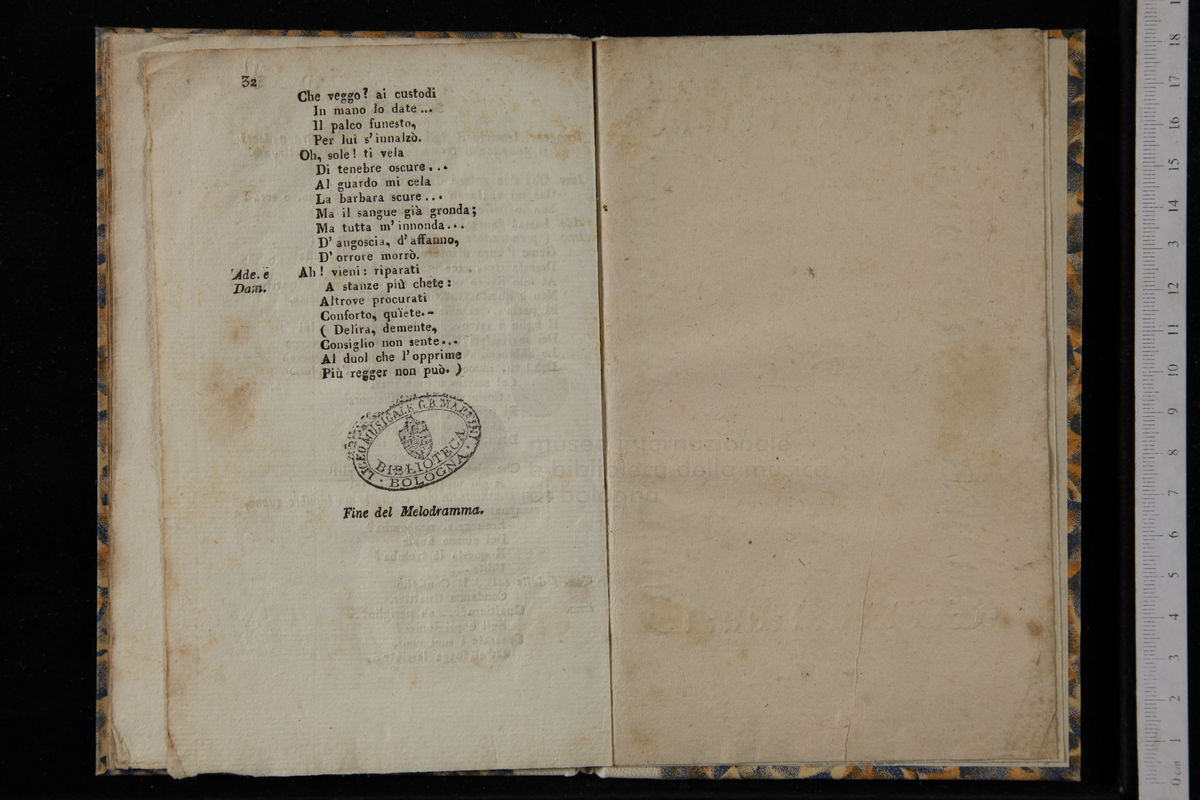 32
Che veggo? ai custodi
In mano lo date...
Il palco funesto,
Per lui s'innalzò.
Oh, sole! ti vela
Di tenebre oscure...
Al guardo mi cela
La barbara scure...
Ma il sangue già gronda;
Ma tutta m'innonda...
D'angoscia, d'affanno,
D'orrore morrò.
Ade. e Dam.
Ah! vieni: riparati
A stanze più chete:
Altrove procurati
Conforto, quïete.-
( Delira, demente,
Consiglio non sente...
Al duol che l'opprime
Più regger non può. )
LICEO MUSICALE G.B. MARTINI
BIBLIOTECA
BOLOGNA
Fine del Melodramma.
museo internazionale
e biblioteca della musica
di bologna
0 cm 1 2 3 4 5 6 7 8 9 10 11 12 13 14 15 16 17 18